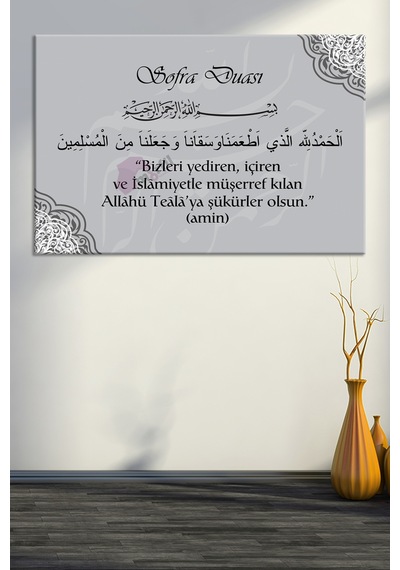 Sofra Duası
بِسْمِ اللهِ الرَّحْمٰنِ الرَّحِيمِ
اَلْحَمْدُلِلّٰهِ الَّذِي اَطْعَمَنَاوَسَقَانَا وَجَعَلَنَا مِنَ الْمُسْلِمِينَ
“Bizleri yediren, içiren
ve İslâmiyetle müşerref kılan
Allâhü Teâlâ’ya şükürler olsun.”
(amin)